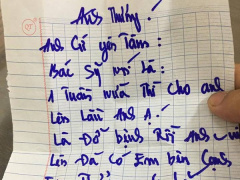 Anh Thương!
Anh Cứ yên Tâm:
Bác Sỹ nói là:
1 Tuần nữa Thì Cho anh
Lên Lầu Anh ạ.
Là Đỡ bịnh Rồi Anh
Lên Đã Có Em bên Cạnh